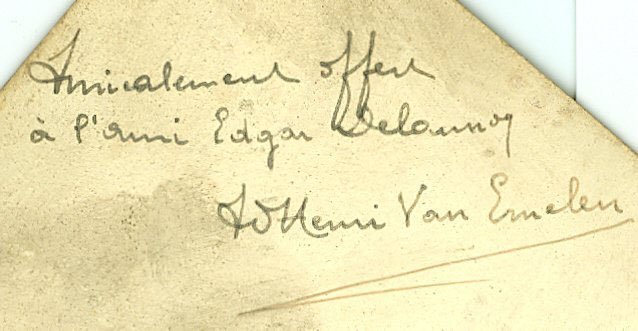 Amicalement offert
à l'ami Edgar Delaunoy
AdHenri Van Emelen